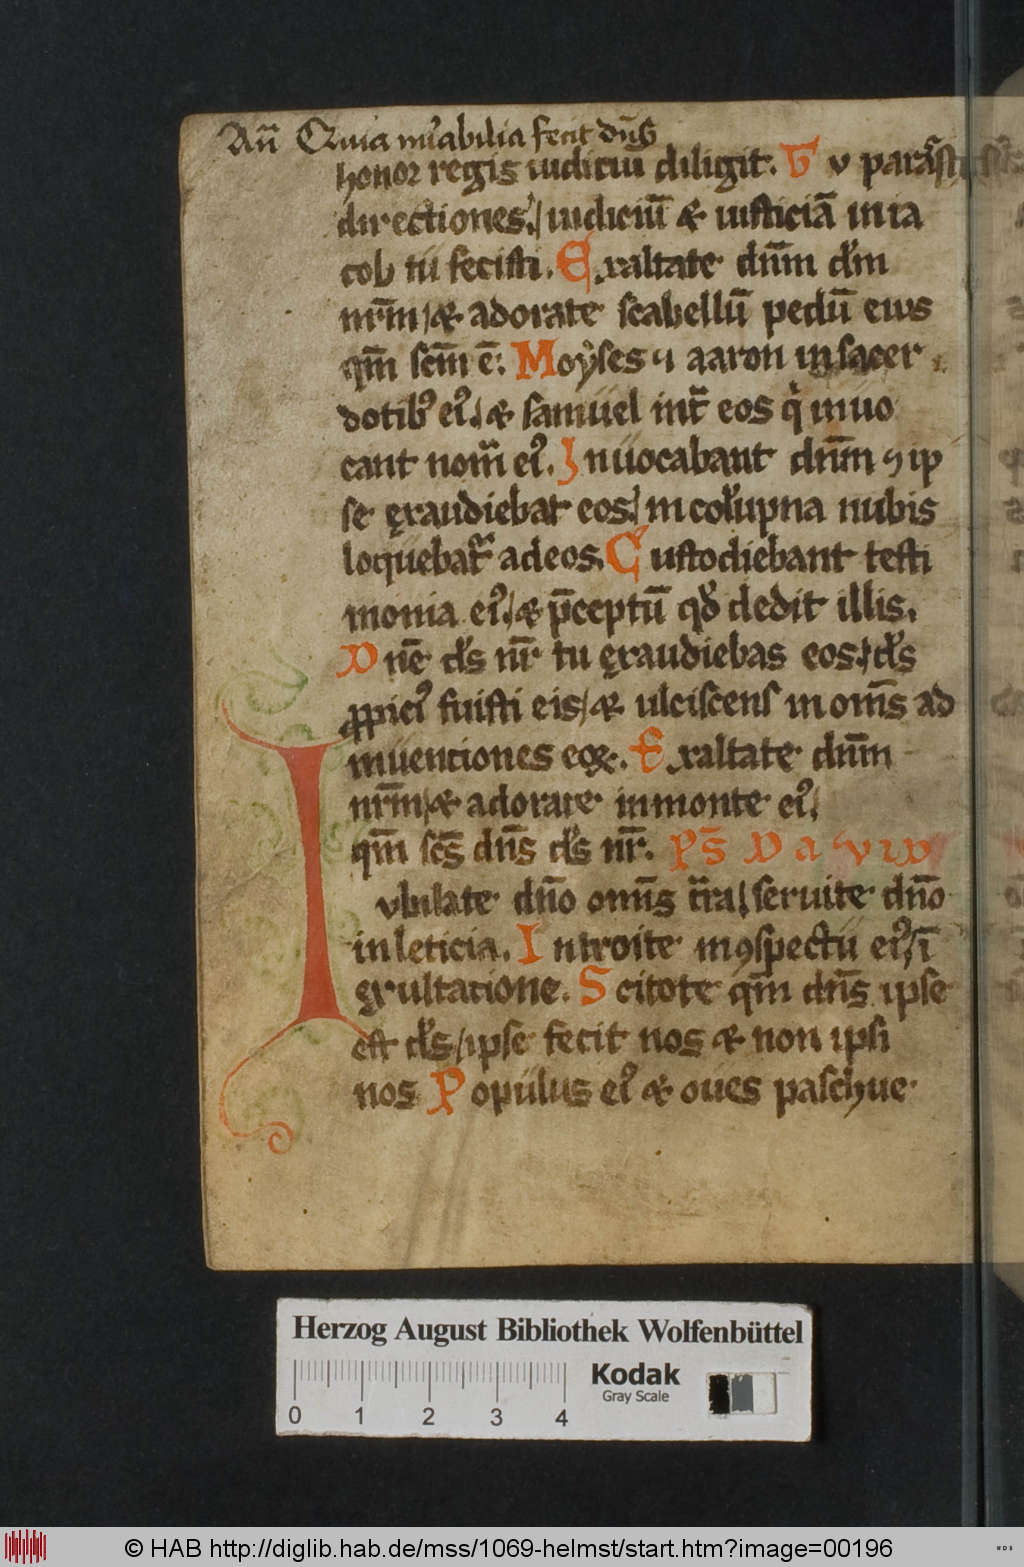 Añ Quia mirabilia fecit dñs
honor regis iudiciū diligit. Tu parasti
directiones, iudiciū & iusticiā in ia
cob tu fecisti. Exaltate dn̄m dm̄
nr̄m, & adorate scabellū pedū eius
qm̄ scm̄ ē. Moyses ⁊ aaron in sacer
dotibꝰ eiꝰ, & samuel int̄ eos q̇ inuo
cant nom̄ eiꝰ. Inuocabant dn̄m ⁊ ip
se ęxaudiebat eos, in colūpna nubis
loquebat᷑ ad eos. Custodiebant testi
monia eiꝰ, & p̄ceptū qd̄ dedit illis.
Dn̄e ds̄ nr̄ tu ęxaudiebas eos, ds̄
ꝓpiciꝰ fuisti eis, & ulciscens in om̄s ad
inuentiones eoꝝ. Exaltate dn̄m
nr̄m, & adorate in monte eiꝰ,
qm̄ scs̄ dn̄s ds̄ nr̄. Ps̄ Dauid
Iubilate dn̄o omīs t̄ra, seruite dn̄o
in leticia. Introite in ꝯspectu eiꝰ, ī
ęxultatione. Scitote qm̄ dn̄s ipse
est ds̄, ipse fecit nos & non ipsi
nos Populus eiꝰ & oues paschue
Herzog August Bibliothek Wolfenbüttel
0 1 2 3 4
Kodak
Gray Scale
© HAB http://diglib.hab.de/mss/1069-helmst/start.htm?image=00196